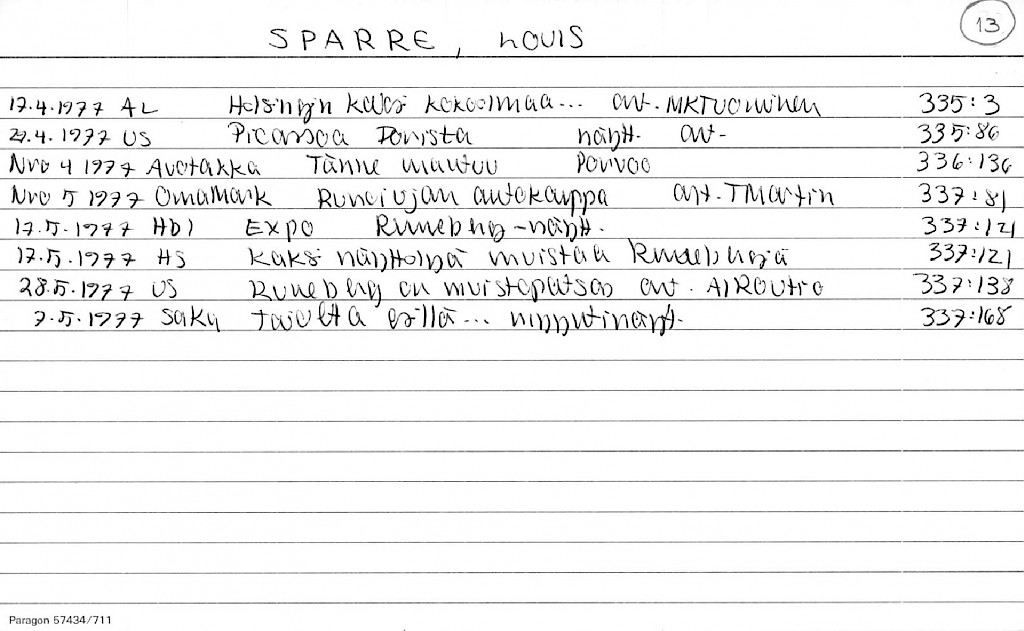 13
SPARRE, LOUIS
17.4.1977 AL Helsingin kaksi kokoelmaa... art. MKTuominen 335:3
29.4.1977 US Picassoa näytt. art- 335:86
Nro 4 1977 Avotakka Tänne muuttuu Porvoo 336:136
Nro 5 1977 OmaMark Runoiujan autokauppa art. TMartin 337:81
17.5.1977 Hbl Expo Runeberg-näytt. 337:121
17.5.1977 HS Kaksi näyttelyä muistaa Runebergiä 337:121
28.5.1977 US Runeberg on muistopatsas art. AIRoutio 337:138
7.5.1977 Saku esillä... 337:168
Paragon 57434/711